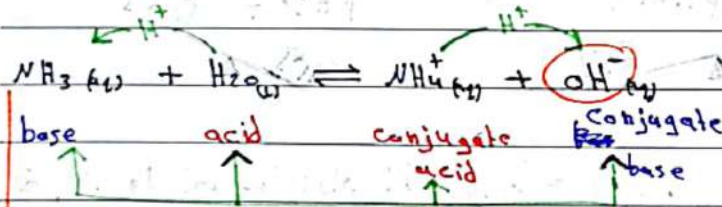 H⁺ H⁺
NH3 (aq) + H2O(l) ⇌ NH4⁺(aq) + OH⁻(aq)
base acid conjugate acid Conjugate base